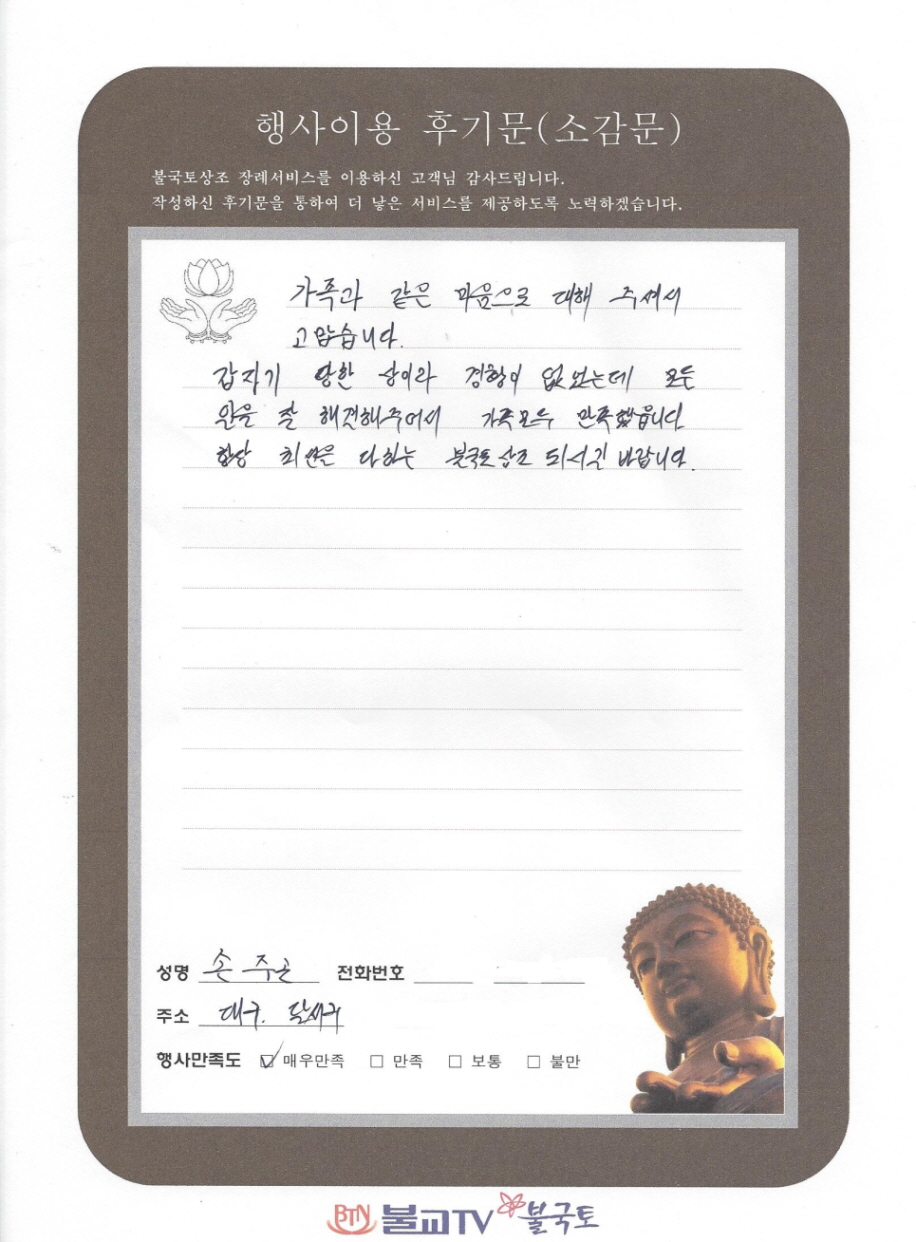 행사이용 후기문(소감문)
불국토상조 장례서비스를 이용하신 고객님 감사드립니다.
작성하신 후기문을 통하여 더 낳은 서비스를 제공하도록 노력하겠습니다.
가족과 같은 마음으로 대해 주셔서
고맙습니다.
갑자기 당한 상이라 경황이 없었는데 모든
일을 잘 해결해주어서 가족모두 만족했읍니다
항상 최선을 다하는 불국토상조 되시길 바랍니다.
성명 손 주곤 전화번호
주소 대구. 달서구
행사만족도 ☑ 매우만족 □ 만족 □ 보통 □ 불만
BTN 불교TV 불국토